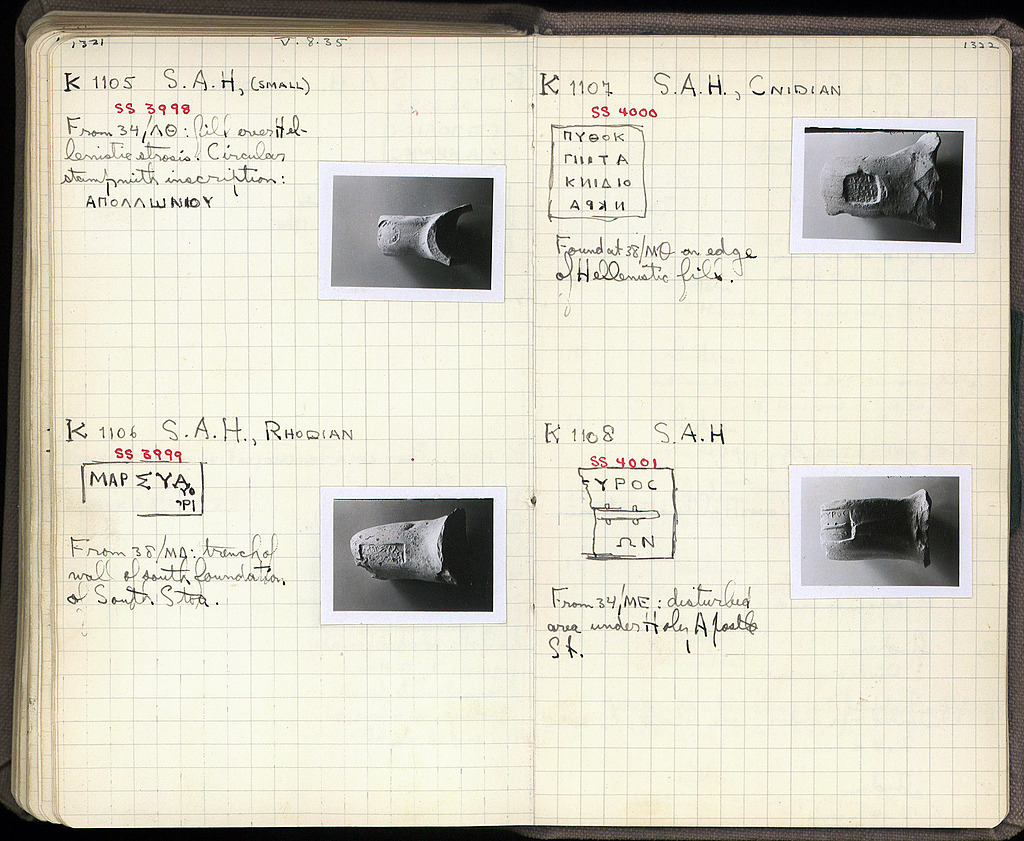 1321
V. 8. 35
K 1105 S.A.H, (SMALL)
SS 3998
From 34/ΛΘ: fill over Hel-
lenistic strosis. Circular
stamp with inscription:
ΑΠΟΛΛШΝΙΟΥ
K 1106 S.A.H., RHODIAN
SS 3999
ΜΑΡΣΥΑ
ΥΟ
ΡΙ
From 38/ΜΔ: trench of
wall of south foundation
of South Stoa.
1322
K 1107 S.A.H., CNIDIAN
SS 4000
ΠΥΘΟΚ
ΤΑ
ΚΝΙΔΙΟ
Found at 38/ΜΘ on edge
of Hellenistic fill.
K 1108 S.A.H
SS 4001
ΥΡΟC
ΩΝ
From 34/ΜΕ: disturbed
area under Holy Apostle
St.